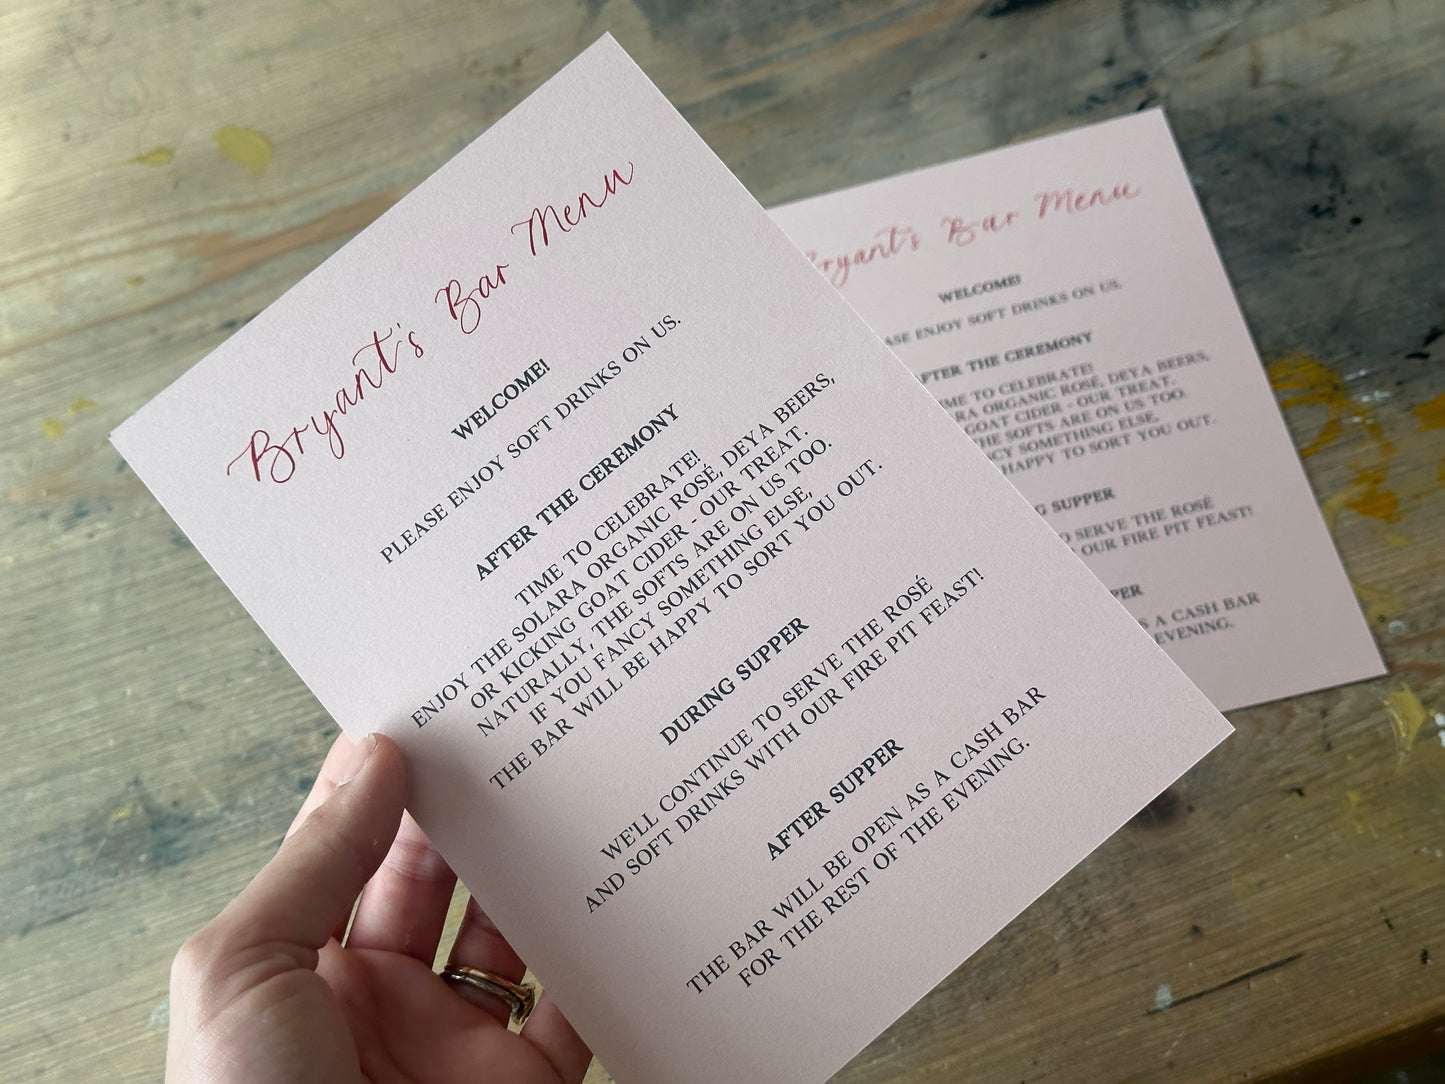 Bryant's Bar Menu
WELCOME!
PLEASE ENJOY SOFT DRINKS ON US.
AFTER THE CEREMONY
TIME TO CELEBRATE!
ENJOY THE SOLARA ORGANIC ROSÉ, DEYA BEERS,
OR KICKING GOAT CIDER - OUR TREAT.
NATURALLY, THE SOFTS ARE ON US TOO.
IF YOU FANCY SOMETHING ELSE,
THE BAR WILL BE HAPPY TO SORT YOU OUT.
DURING SUPPER
WE'LL CONTINUE TO SERVE THE ROSÉ
AND SOFT DRINKS WITH OUR FIRE PIT FEAST!
AFTER SUPPER
THE BAR WILL BE OPEN AS A CASH BAR
FOR THE REST OF THE EVENING.
Bryant's Bar Menu
WELCOME!
ENJOY SOFT DRINKS ON US.
THE CEREMONY
TO CELEBRATE!
ORGANIC ROSÉ, DEYA BEERS,
GOAT CIDER - OUR TREAT.
THE SOFTS ARE ON US TOO.
SOMETHING ELSE,
HAPPY TO SORT YOU OUT.
SUPPER
SERVE THE ROSÉ
OUR FIRE PIT FEAST!
A CASH BAR
EVENING.